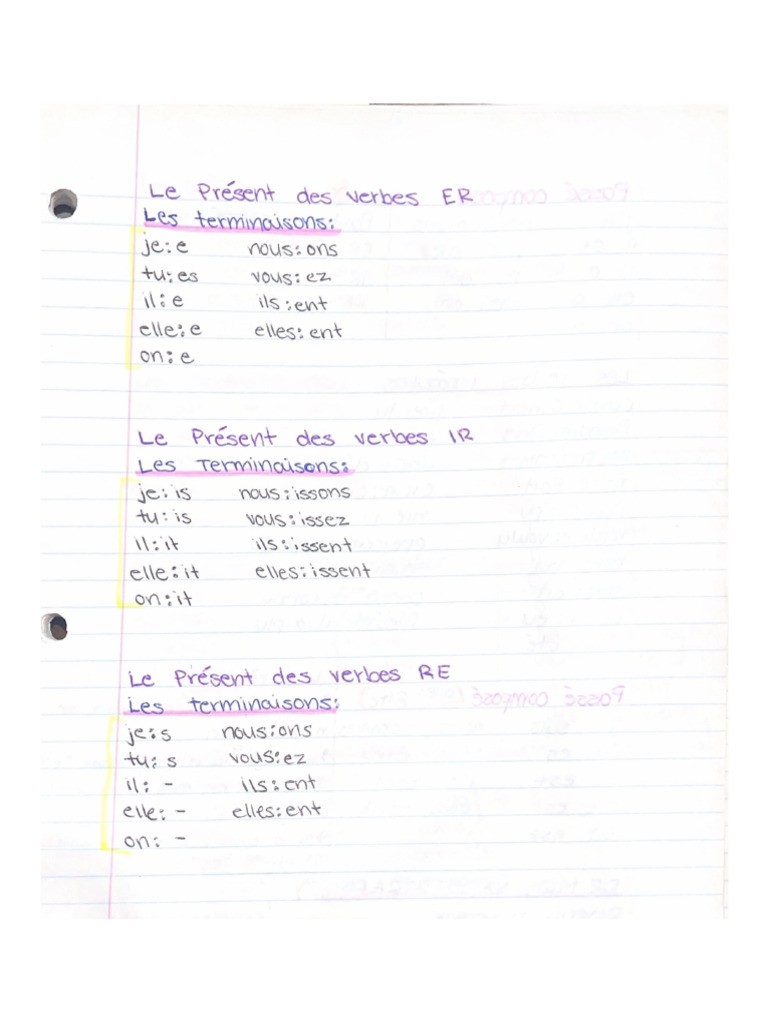 Le Présent des verbes ER
Les terminaisons:
je: e nous: ons
tu: es vous: ez
il: e ils: ent
elle: e elles: ent
on: e
Le Présent des verbes IR
Les Terminaisons:
je: is nous: issons
tu: is vous: issez
il: it ils: issent
elle: it elles: issent
on: it
Le Présent des verbes RE
Les terminaisons:
je: s nous: ons
tu: s vous: ez
il: - ils: ent
elle: - elles: ent
on: -